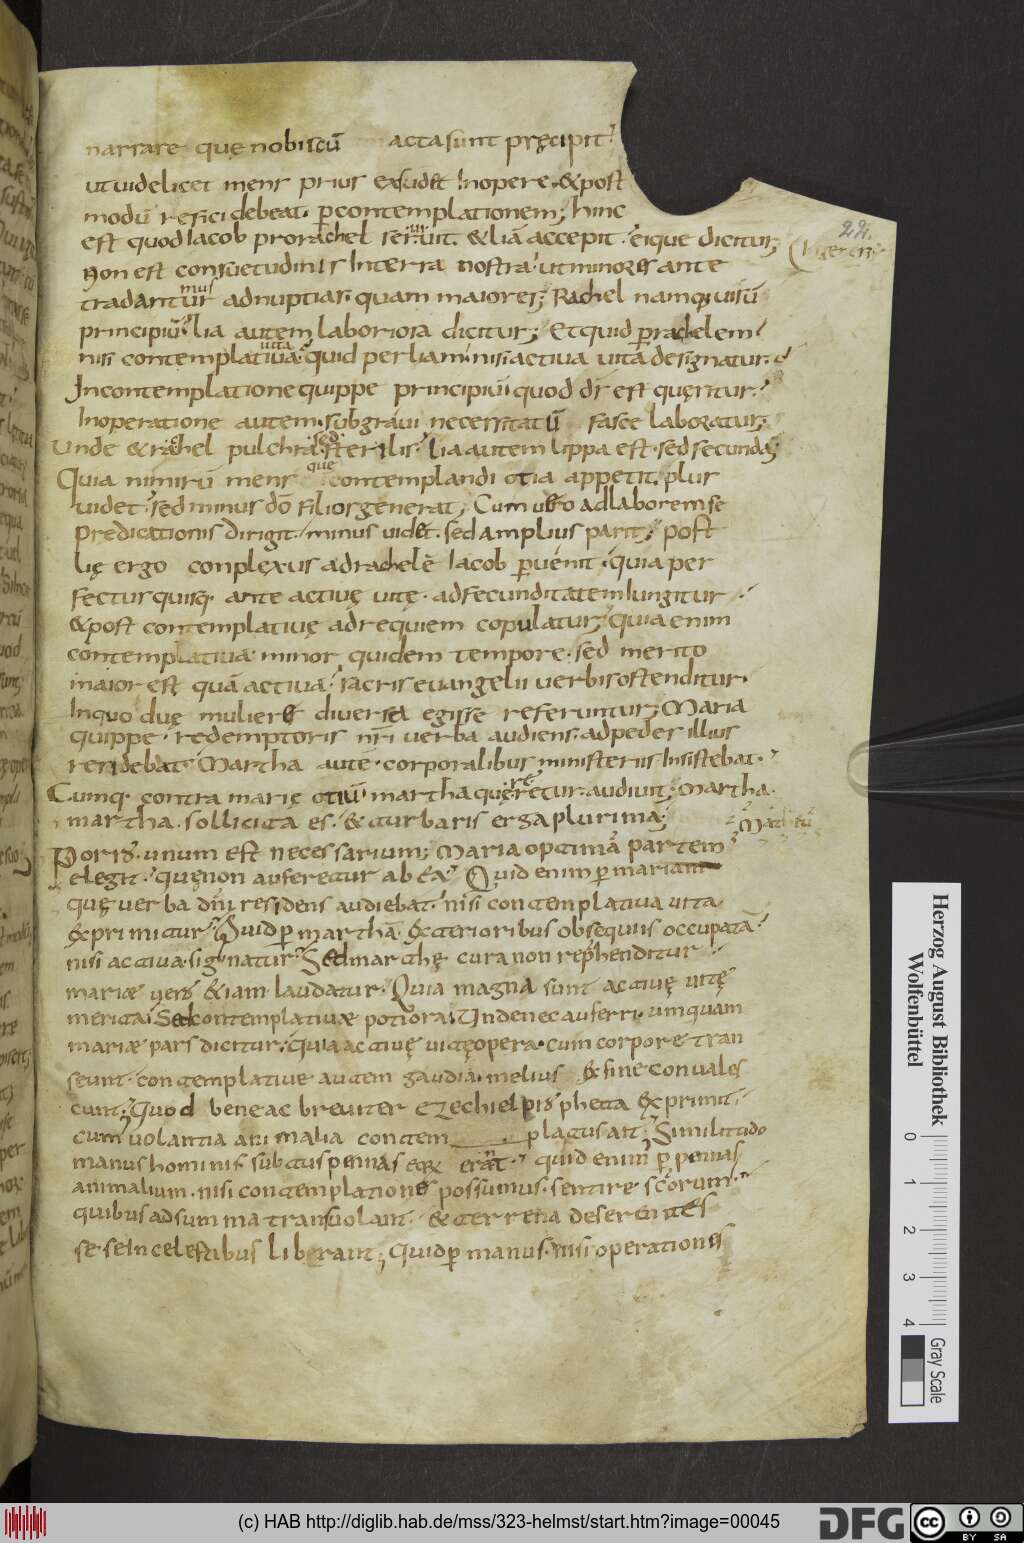 narrare que nobiscū acta sunt pręcipit
ut uidelicet mens prius exsudet In opere & post
modū refici debeat p contemplationem; hinc
est quod Iacob pro rachel seruit. & liā accepit. eique dicitur;
Non est consuetudinis In terra nostra ut minores ante
tradantur mus ad nuptias quam maiores; Rachel namq; uisū
principiū. lia autem laboriosa dicitur; Et quid p rachelem
nisi contemplatiua uita quid per liam nisi actiua uita designatur.
In contemplatione quippe principiū quod dš est quęritur.
In operatione autem sub graui necessitatū fasce laboratur;
Unde & rachel pulchra sed sterilis. lia autem lippa est sed secunda;
Quia nimirū mens que contemplandi otia appetit. plus
uidet sed minus dō filios generat; Cum uero ad laborem se
predicationis dirigit. minus uidet. sed amplius parit; post
lię ergo conplexus ad rachelē Iacob puenit. quia per
fectus quisq; ante actiuę uitę ad fecunditatem Iungitur
& post contemplatiuę ad requiem copulatur; quia enim
contemplatiua minor quidem tempore. sed merito
maior est quā actiua. sacris euangelii uerbis ostenditur.
In quo duę mulieres diuersa egisse referuntur; Maria
quippe redemptoris nr̄i uerba audiens. ad pedes illius
residebat Martha autē corporalibus ministeriis Insistebat.
Cumq; contra marię otiū martha quereretur audiuit; Martha.
martha. sollicita es. & turbaris erga plurima;
Porro unum est necessarium; Maria optimā partem
elegit. quę non auferetur ab ea. Quid enim p mariam
quę uerba dn̄i residens audiebat. nisi contemplatiua uita
exprimitur. Quid p marthā exterioribus obsequiis occupatā
nisi actiua signatur. Sed marthę cura non reprehenditur
mariæ uero etiam laudatur. Quia magna sunt actiuę uitę
merita. Sed contemplatiuæ potiora. Unde nec auferri umquam
mariæ pars dicitur. quia actiuę uitę opera cum corpore tran
seunt. contemplatiue autem gaudia melius ex fine conuales
cunt; Quod bene ac breuiter ezechiel propheta exprimit.
cum uolantia animalia contem platus ait; Similitudo
manus hominis subtus pennas eorum erat. quid enim p pennas
animalium. nisi contemplationes possumus sentire scōrum.
quibus ad summa transuolant. & terrena deserentes
sese In celestibus librant; Quid p manus. nisi operationes
Herzog August Bibliothek
Wolfenbüttel
0 1 2 3 4
Gray Scale
(c) HAB http://diglib.hab.de/mss/323-helmst/start.htm?image=00045
DFG
cc BY SA